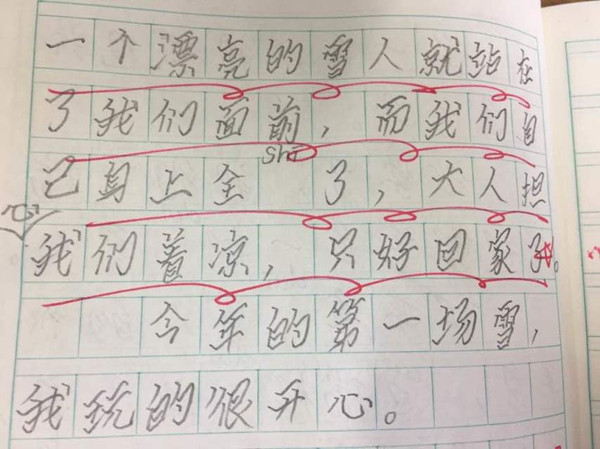 一个漂亮的雪人就站在
了我们面前，而我们自
己身上全shī了，大人担
心我们着凉，只好回家了。
今年的第一场雪，
我玩的很开心。